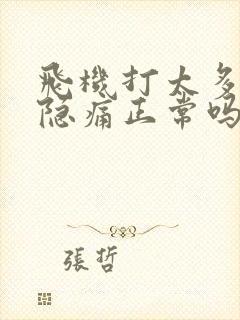 飛機打太多
隐痛正常吗
張哲